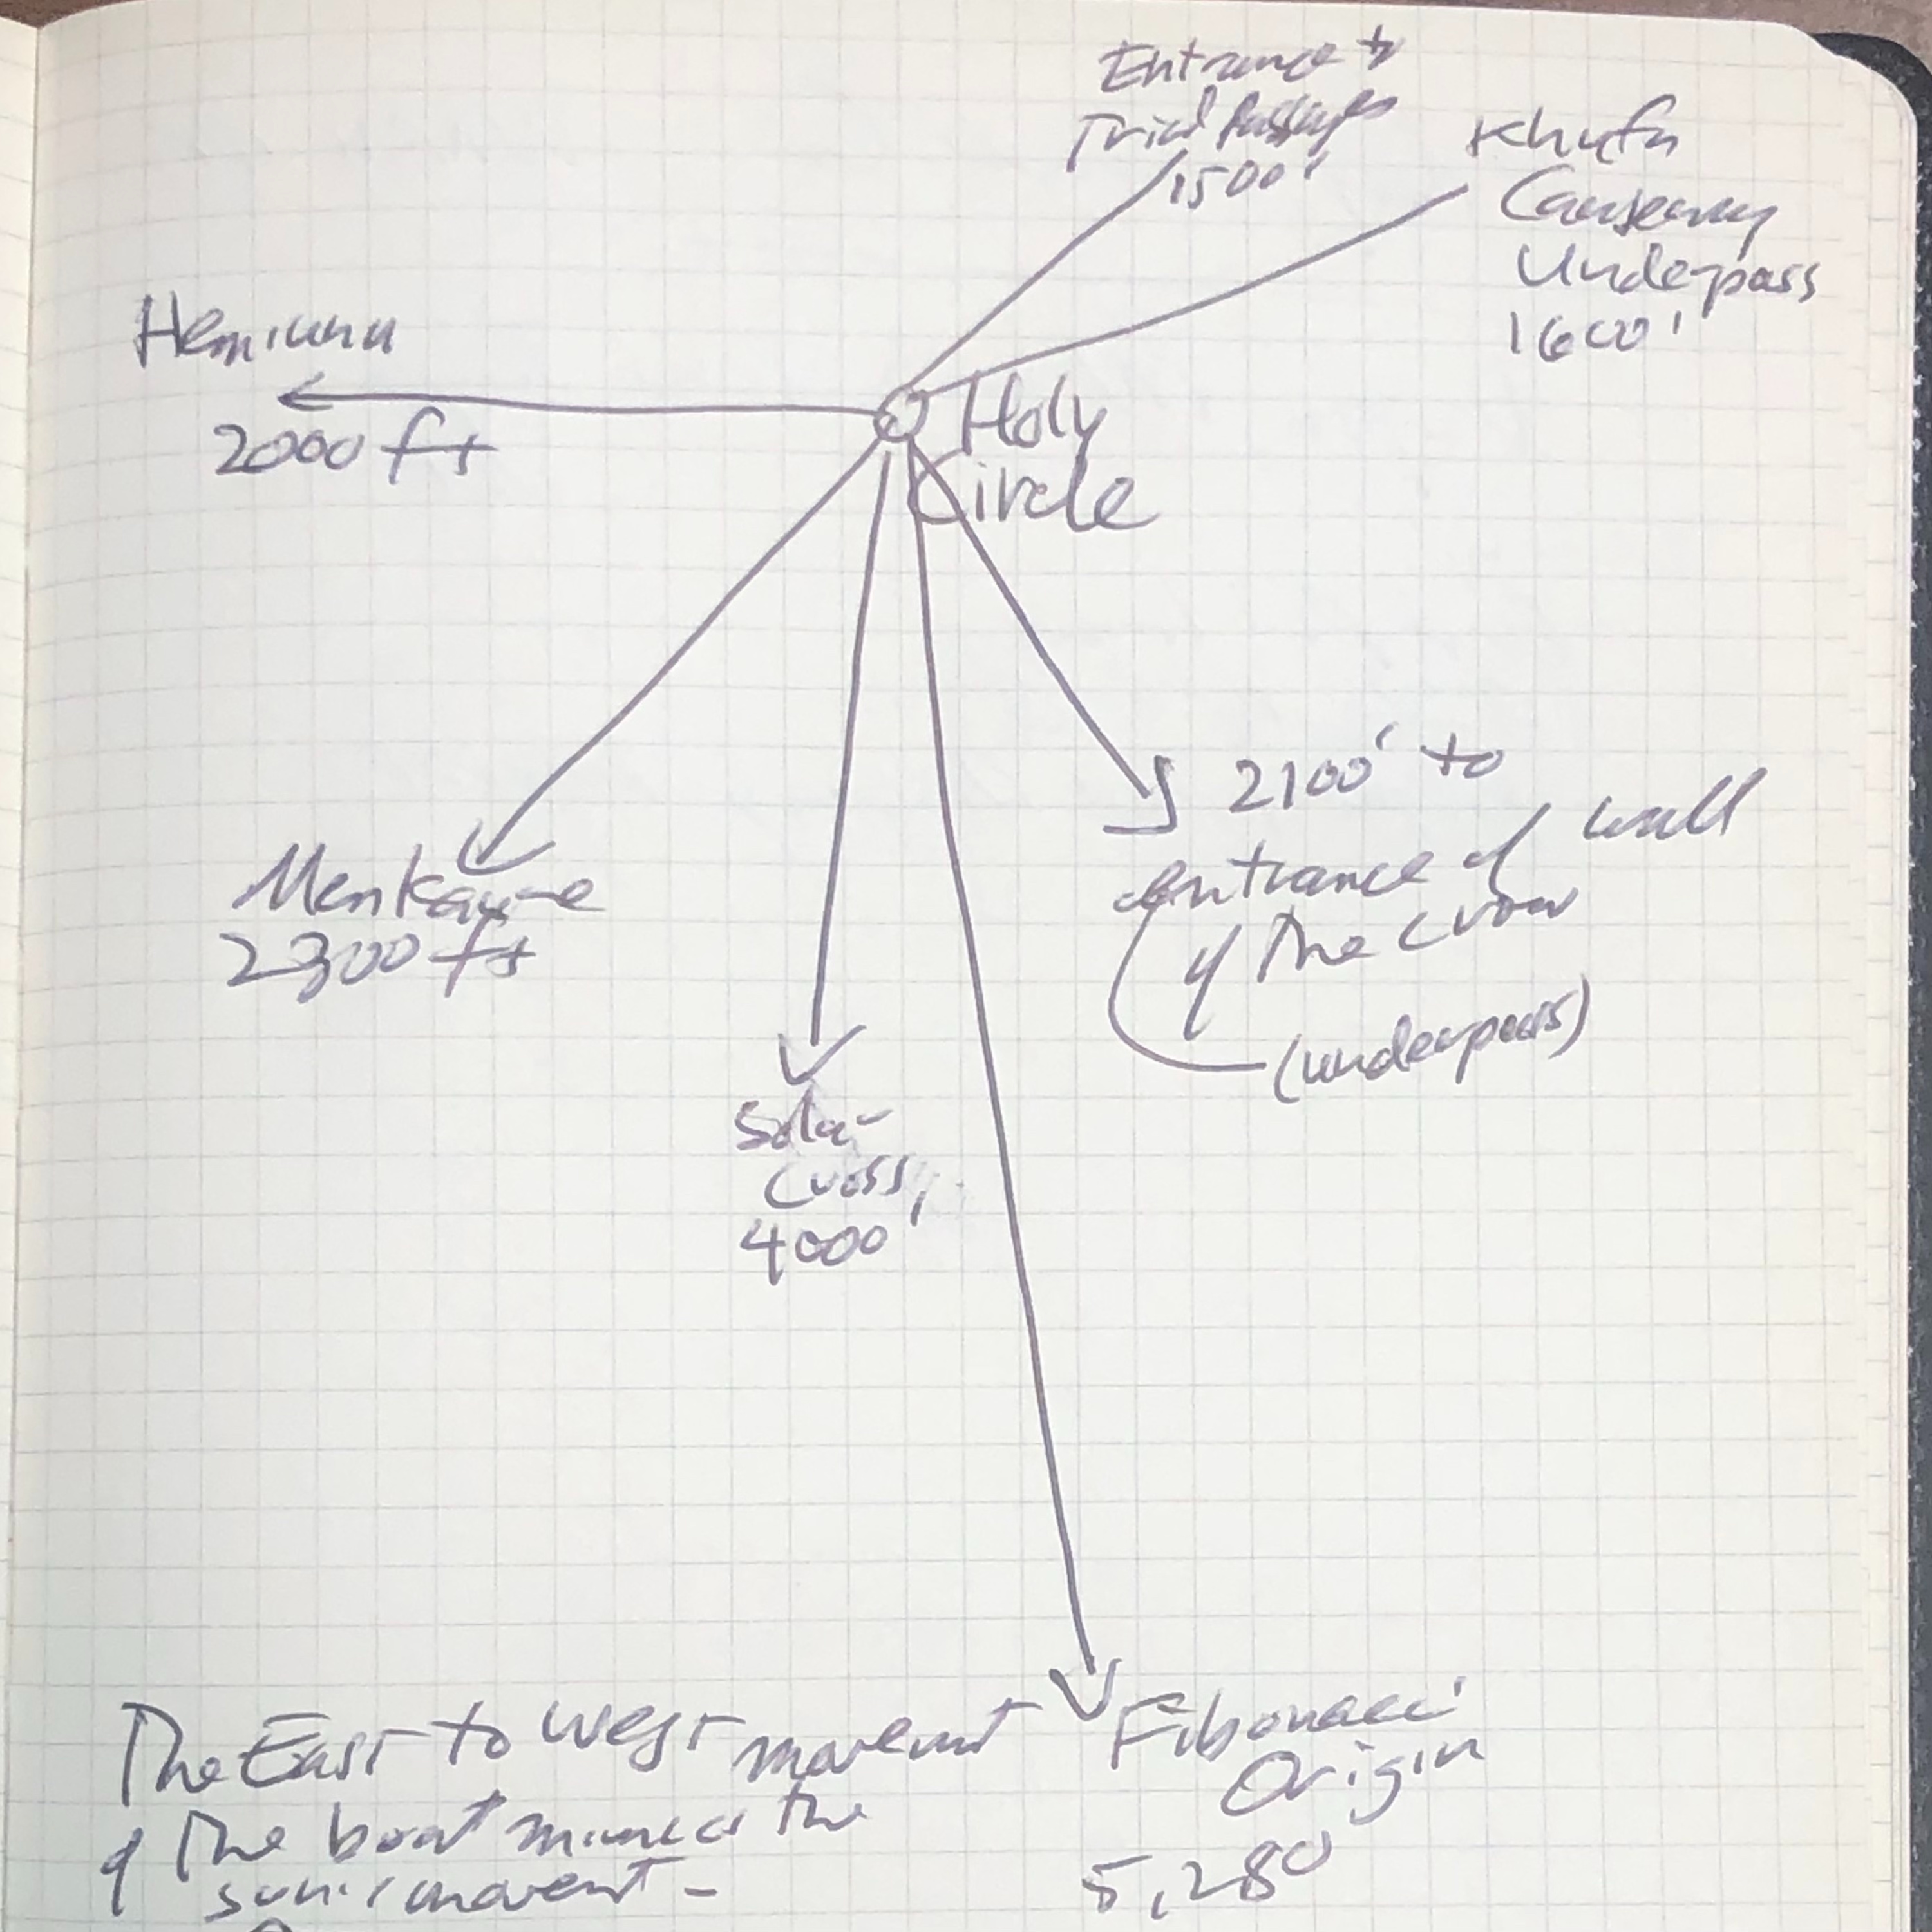 Entrance to
Trial Passages
1500'
Khufu
Causeway
Underpass
1600'
Hemiunu
2000 ft
Holy
Circle
2100' to
entrance of wall
of the crow
(underpass)
Menkaure
2300 ft
Solar
Cross,
4000'
Fibonacci
Origin
5,280
The East to West movement
of The boat mimics the
sun's movent -